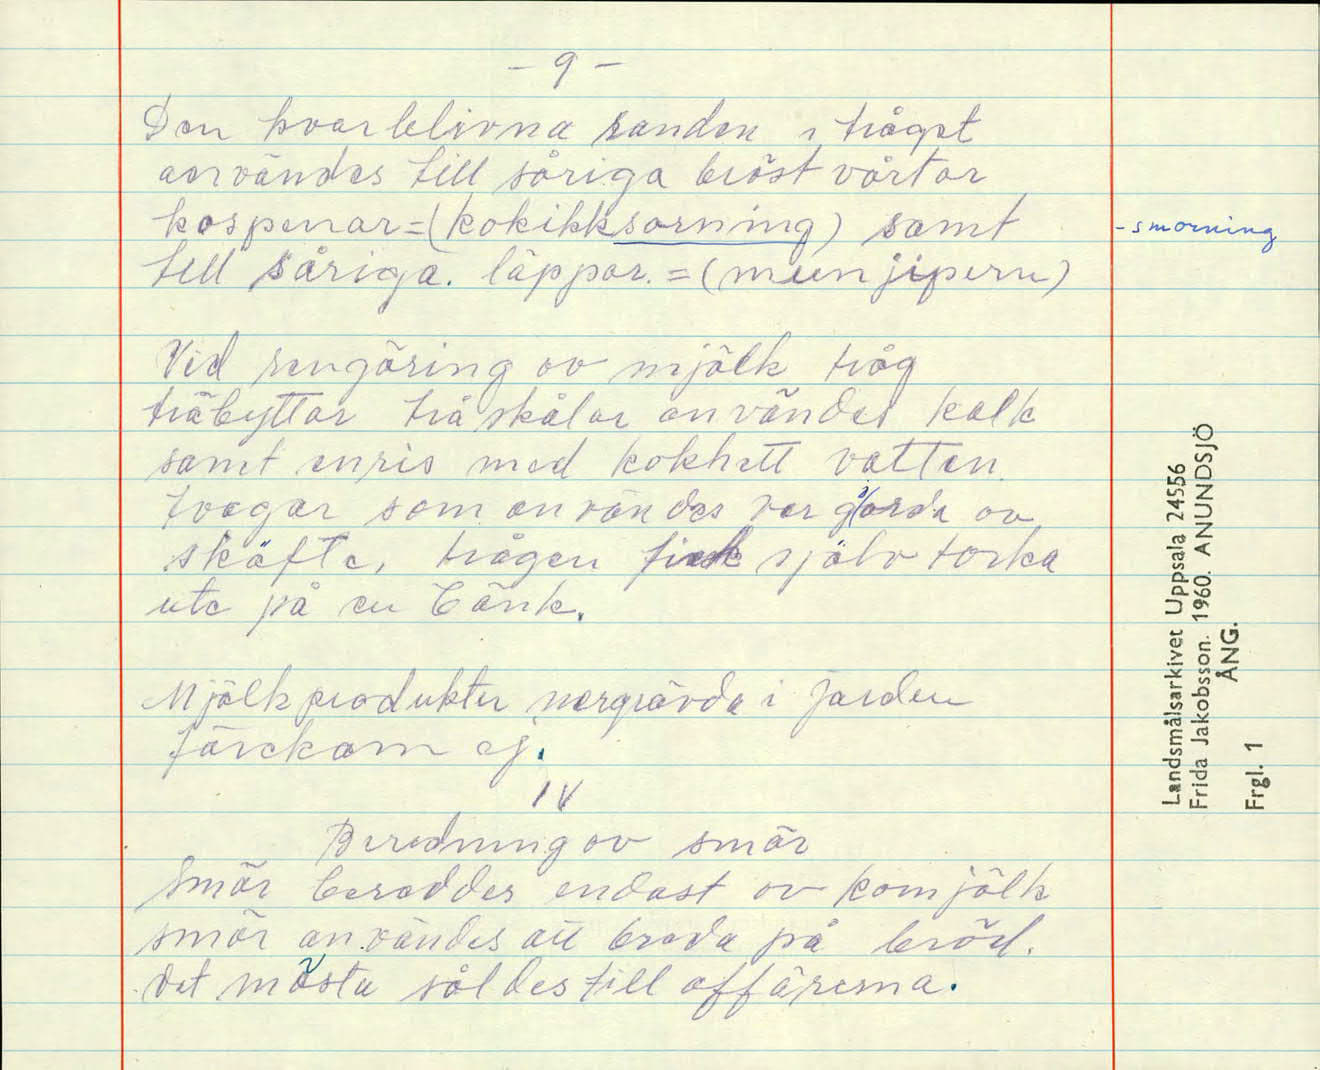 - 9 -
Den kvarblivna randen i tråget
användes till såriga bröst vårtor
kospenar=(kokikksorning) samt
-smorning
till såriga. läppar.=(munnjipern)
Vid rengöring av mjölk tråg
träbyttor trå skålar användes kalk
samt enris med kokhett vatten.
tvagar som användes var gjorda av
skäfte, trågen fick själv torka
ute på en bänk.
Mjölkprodukter nergrävda i jorden
förekom ej.
IV
Beredning av smör
Smör bereddes endast av komjölk
smör användes att breda på bröd.
det mästa såldes till affärerna.
Landsmålsarkivet Uppsala 24556
Frida Jakobsson. 1960. ANUNDSJÖ
ÅNG.
Frgl. 1